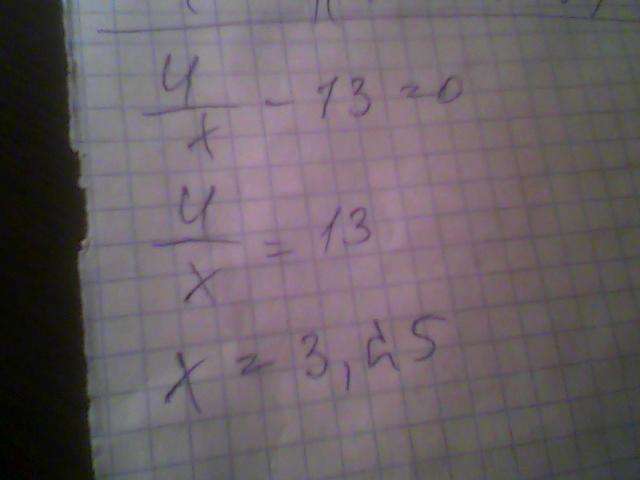 4/x - 13 = 0
4/x = 13
x = 3,25